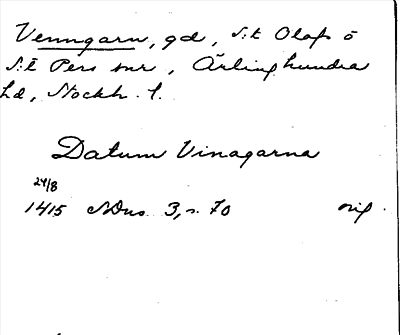 Venngarn, gd, S:t Olofs o
S:t Pers snr, Ärlinghundra
hd, Stockh. l.
Datum Vinagarna
24/8
1415 SDns 3, s. 70 orig.